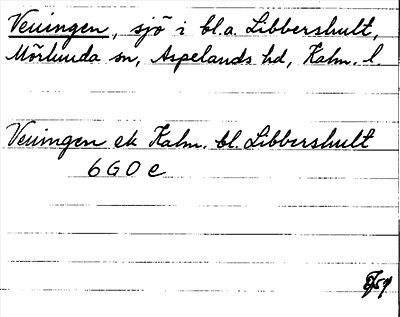 Versingen, sjö i bl.a. Libbershult,
Mörlunda sn, Aspelands hd, Kalm. l.
ek Kalm. bl. Libbershult
6G0e